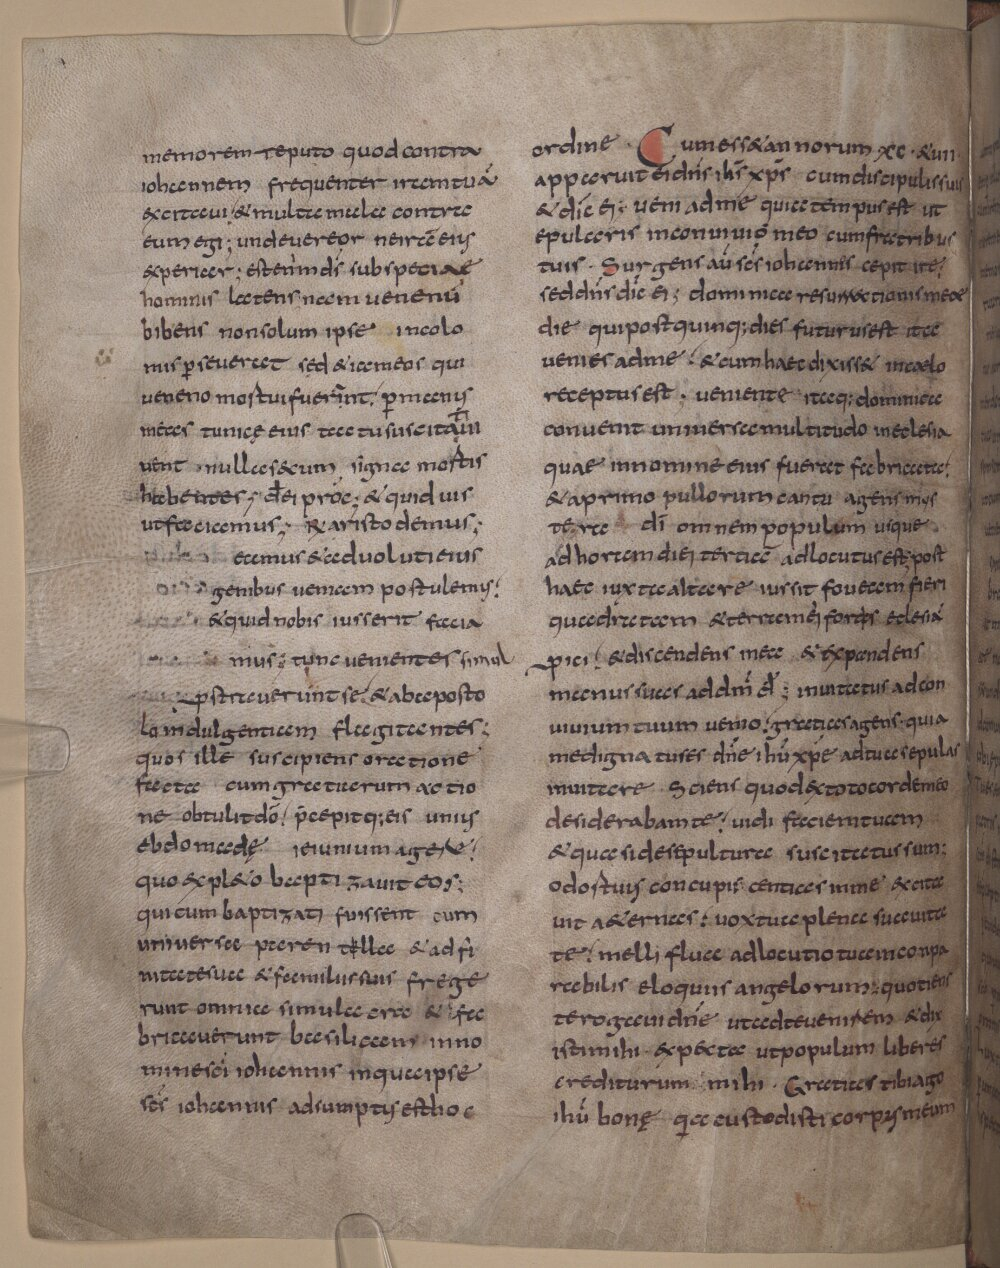 memorem reputo quod contra
iohannem frequenter iram tuā
excitaui & multa mala contra
eum egi; unde uereor ne irā eius
experiar; est enim dś sub speciae
hominis latens nam uenenū
bibens non solum ipse incolo
mis pseuerat sed & iam eos qui
ueneno mortui fuerant; p manus
meas tunicę eius tactu suscitaui
uerunt nulla secum signa mortis
habentes; et quid uis
ut faciamus; R aristodemus;
eamus & aduoluti eius
genibus ueniam postulemus;
& quid nobis iusserit facia
mus; tunc uenientes simul
pstrauerunt se & ab aposto
lo indulgentiam flagitantes;
quos ille suscipiens oratione
facta cum gratiarum actio
ne obtulit dō pcepitq; eis unius
ebdomadę ieiunium age&;
quo expl&o baptizauit eos;
qui cum baptizati fuissent cum
uniuersa parentella & adfi
nitate sua & famulis suis frege
runt omnia simulacra & fa
bricauerunt basilicam inno
mine sci iohannis in qua ipse
scs iohannis adsumptus est hoc
ordine · Cum ess& annorum xc · & uii ·
apparuit ei dns ihs xps cum discipulis suis
& dic ei; ueni ad me quia tempus est ut
epularis in conuiuio meo cum fratribus
tuis · Surgens au scs iohannis cepit ire;
sed dns dic ei; dominica resurrectionis meae
die qui post quinq; dies futurus est ita
uenies ad me; & cum haec dixiss& in caelo
receptus est · ueniente itaq; dominica
conuenit uniuersa multitudo in eclesia
quae in nomine eius fuerat fabricata;
& a primo pullorum cantu agens mys
teria di omnem populum usque
ad horam diei tertiā adlocutus est; post
haec iuxta altare iussit foueam fieri
quadratam & terram ei foras eclesiā
pici; & discendens in ea & expandens
manus suas ad dnm d; inuitatus ad con
uiuium tuum uenio; gratias agens · quia
me dignatus es dne ihu xpe ad tuas epulas
inuitare Sciens quod ex toto corde meo
desiderabam te; uidi faciem tuam
& quasi de sepultura suscitatus sum;
odor tuis concupiscentias in me excita
uit a&ernas; uox tua plena suauita
te; melliflua adlocutio tua inconpa
rabilis eloquiis angelorum; quotiens
te rogaui dne ut ad te uenirem & dix
isti mihi · expecta ut populum liberes
crediturum mihi · Gratias tibi ago
ihu bonę qia custodisti corpus meum